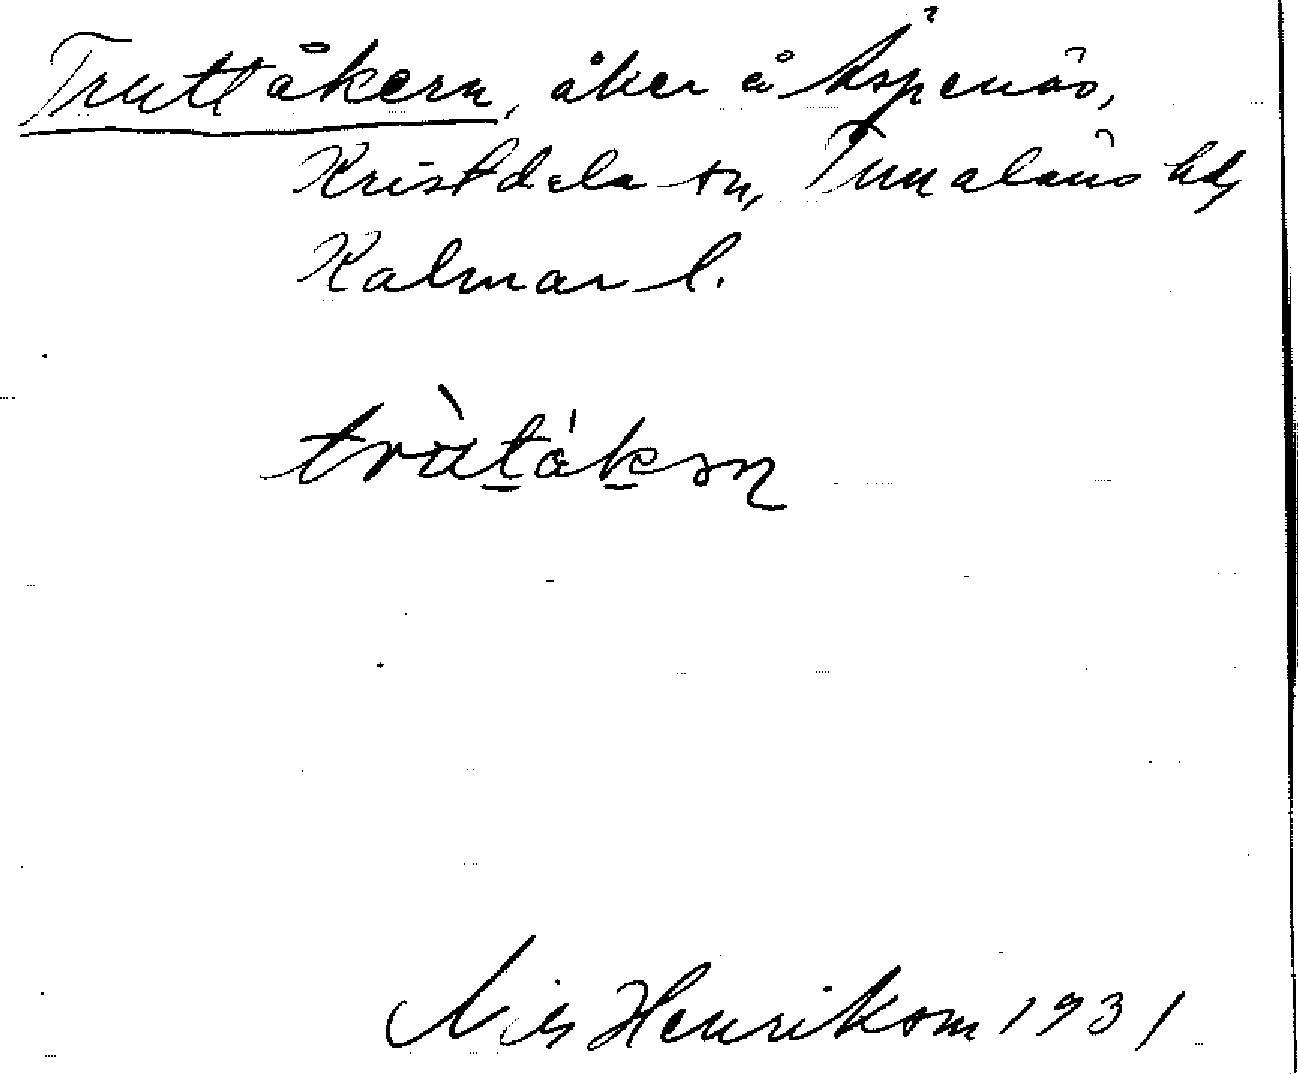 Truttåkern, åker å Aspenäs,
Kristdala sn, Tunaläns hd,
Kalmar l.
tràtåkən
Nils Henrikson 1931